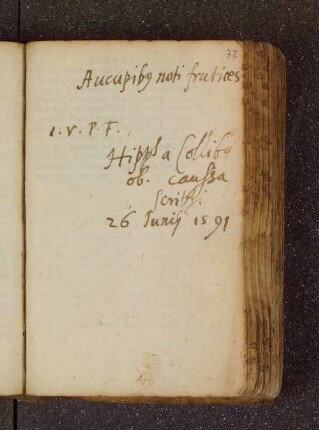 77
Aucupibꝰ noti frutices
I. V. P. F.
Hippl a Collibꝰ
ob. caussa
scrits:
26 Junij 1591